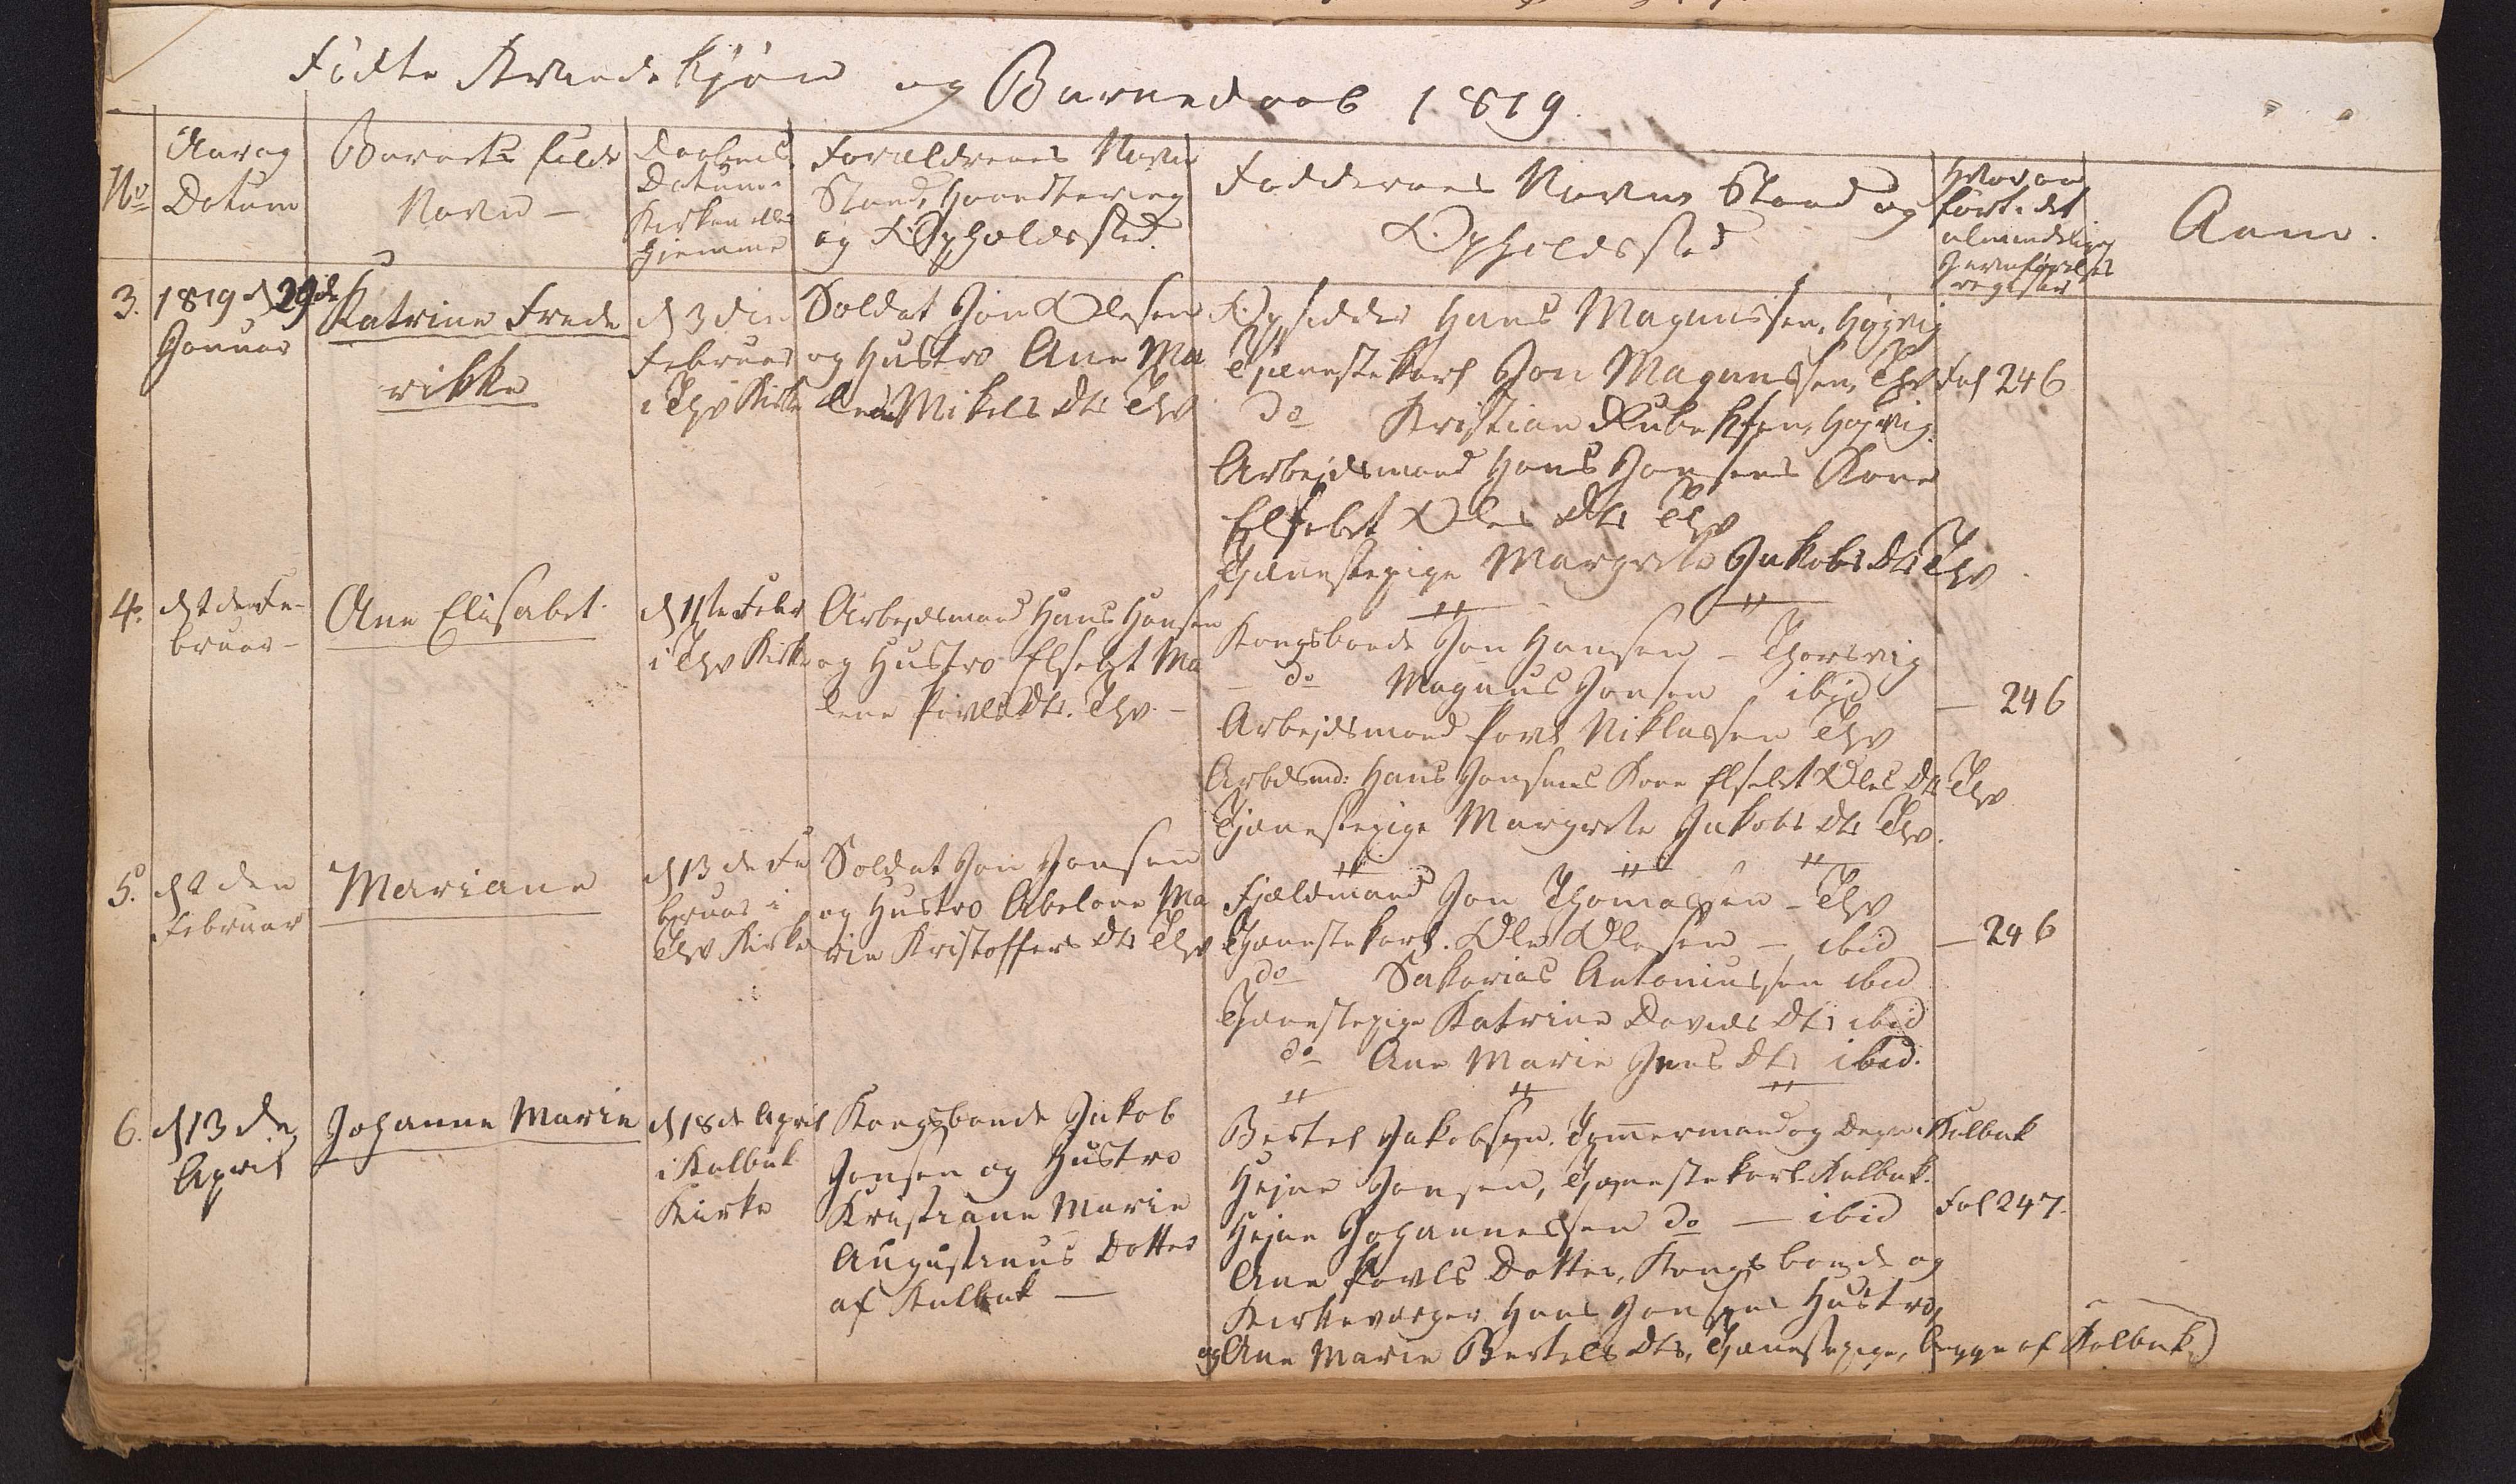 Födte Kvindekjön og Barnedaab 1819.
No
Aar og
Datum
Barnets fulde
Navn -
Daabens
Datum
Kirken eller
hjemme
Forældrenes Navn
Stand, Haandtering
og Opholdssted.
Faddernes Navn Stand og
Opholdssted
Hvor an
fört i det
almindelige
Jevnförelses
register
Anm.
3.
1819 d 29de
Januar
Katrine Frede
rikke
d 3die
Februar
i Thv Kirke
Soldat Jon Olesen
og Hustro Ane Ma
lene Mikels Dtr Thv
Opsidder Hans Magnussen, Höjvig
Tjenestekarl Jon Magnussen, Thv
do Kristian Höjvig
Arbejdsmand Hans Jonsens Kone
Elsebet Oles Dtr Thv
Tjenestepige Margrete Jakobs Dtr Thv
Fol 246
4.
d 2den Fe-
bruar -
Ane Elisabet.
d 11te Febr
i Thv Kirke
Arbejdsmand Hans Hansen
og Hustro Elsebet Ma
lene Povls Dtr. Thv -
Kongsbonde Jon Hansen - Thorsvig
- do Magnus Jonsen ibid
Arbejdsmand Povl Niklassen Thv
Arbdsmd: Hans Jonsens Kone Elsebet Oles Dtr Thv
Tjenestepige Margrete Jakobs Dtr Thv.
- 246
5.
d 2den
Februar
Mariane
d 13de Fe
bruar i
Thv Kirke
Soldat Jon Jonsen
og Hustro Abelone Ma
rie Kristoffers Dtr Thv
Fjeldmand Jon Thomassen - Thv
Tjenestekarl. Ole Olesen - ibid
do Sakarias Antoniussen ibid
Tjenestepige Katrine Davids Dtr ibid
do Ane Marie Jens Dtr ibid.
- 246
6.
d 13de
April
Johanne Marie
d 18de April
i Kalbak
Kirke
Kongsbonde Jakob
Jonsen og Hustro
Kristiane Marie
Augustinus Dotter
af Kalbak -
Bertel Jakobsen. Tømmermand og Degn i Kalbak
Hejne Jonsen, Tjenestekarl Kalbak.
Hejne Johannessen do - ibid
Ane Povls Dotter, Kongsbonde og
Kirkeværger Hans Jonsens Hustro,
og Ane Marie Bertels Dtr, Tjenestepige, begge af Kalbak.)
Fol 247.